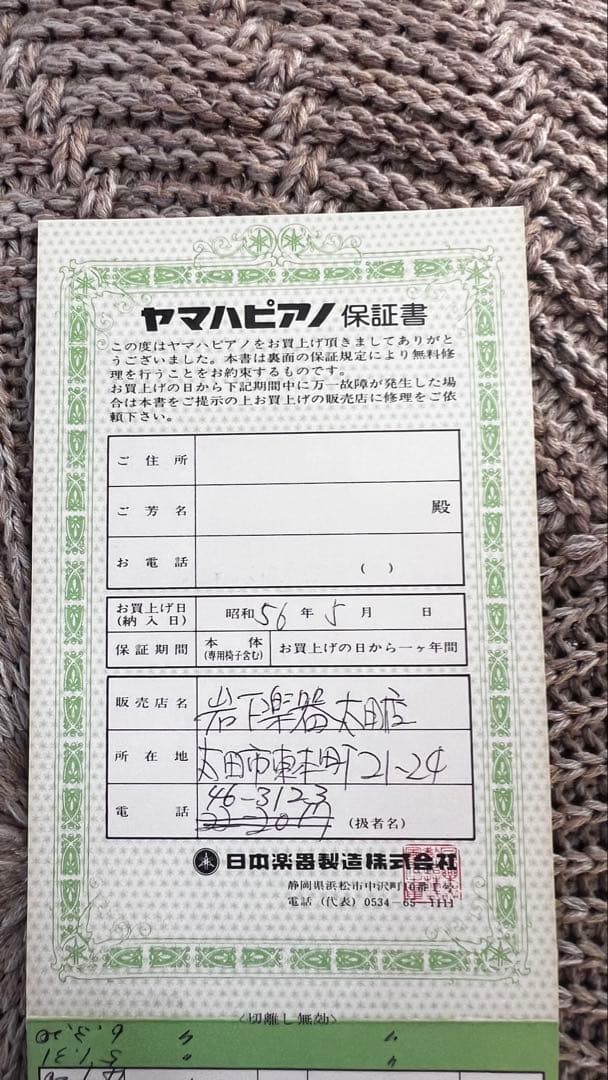 ヤマハピアノ 保証書
この度はヤマハピアノをお買上げ頂きましてありがと
うございました。本書は裏面の保証規定により無料修
理を行うことをお約束するものです。
お買上げの日から下記期間中に万一故障が発生した場
合は本書をご提示の上お買上げの販売店に修理をご依
頼下さい。
ご住所
ご芳名 殿
お電話 ( )
お買上げ日 昭和56年5月 日
(納入日)
保証期間 本体 お買上げの日から一ヶ年間
(専用椅子含む)
販売店名 岩下楽器太田店
所在地 太田市東本町21-24
電話 46-3123
(扱者名)
日本楽器製造株式会社
静岡県浜松市中沢町10番1号
電話(代表)0534-65-1111
〈切離し無効〉
6.3.20 〃 〃
5.1.31 〃 〃